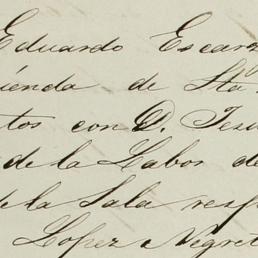 Eduardo Escar
ienda de Sta
tos con D. Jesu
de la Labor de
de la Sala resp
Lopez Negret